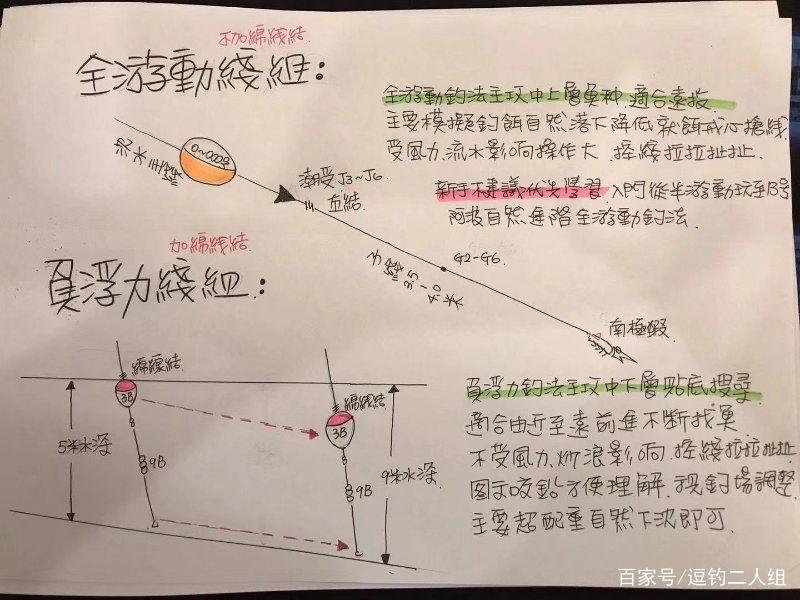 不加綿线結
全游動綫組：
全游動釣法主攻中上層魚种.適合遠投
主要模擬釣餌自然落下降低就餌戒心搶線
受風力.流水影响操作大.控綫拉拉扯扯
0~00号
潮受J3~J6
直結
新手不建議优先學習.入門從半游動玩至B号
阿波自然進階全游動釣法.
加綿线結.
G2-G6
子線3.5-4.0米
負浮力綫組：
南極蝦
綿線結
綿线結
3B
3B
5米水深
9B
9B
9米水深
負浮力釣法主攻中下層貼底.搜尋
適合由近至遠前進不断找魚
不受風力.浪影响.控綫拉拉扯扯
图示咬鉛方便理解.視釣場調整
主要超配重自然下沉即可.
百家号/逗钓二人组